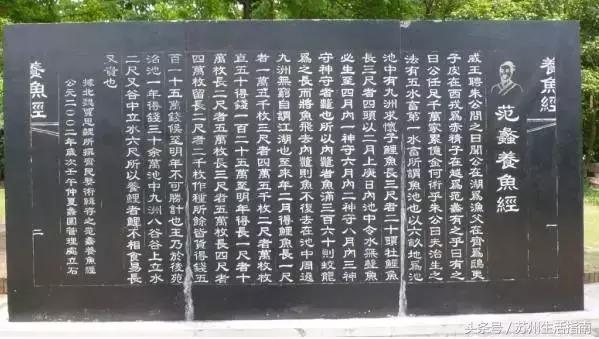 養魚經
一
范蠡養魚經
威王聘朱公問之曰聞公在湖爲漁父在齊爲鴟夷
子皮在西戎爲赤精子在越爲范蠡有之乎曰有之
曰公任足千萬家累億金何術乎朱公曰夫治生之
法有五水畜第一水畜所謂魚池也以六畝地爲池
池中有九洲求懷子鯉魚長三尺者二十頭牡鯉魚
長三尺者四頭以二月上庚日內池中令水無聲魚
必生至四月內一神守六月內二神守八月內三神
守神守者鱉也所以內鱉者魚滿三百六十則蛟龍
爲之長而將魚飛去內鱉則魚不復去在池中周遶
九洲無窮自謂江湖也至來年二月得鯉魚長一尺
者一萬五千枚三尺者四萬五千枚二尺者萬枚枚
直五十得錢一百二十五萬至明年得長一尺者十
萬枚長二尺者五萬枚長三尺者五萬枚長四尺者
四萬枚留長二尺者二千枚作種所餘皆貨得錢五
百一十五萬錢候至明年不可勝計也王乃於後苑
治池一年得錢三十余萬池中九洲八谷谷上立水
二尺又谷中立水六尺所以養鯉者鯉不相食易長
又貴也
據北魏賈思勰所撰齊民要術輯存之范蠡養魚經
公元二〇〇二年歲次壬午仲夏蠡園管理處立石
養魚經
二
头条号/苏州生活指南